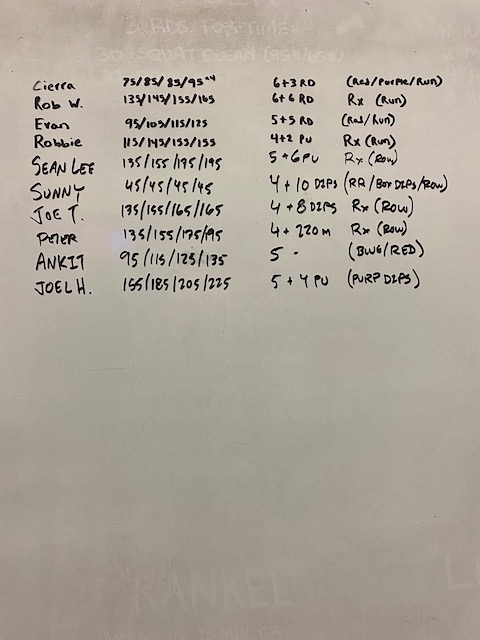 3 RDS. FOR TIME
30 SQUAT CLEAN
Cierra 75/85/85/95 6+3 RD (Red/Purple/Run)
Rob W. 135/145/155/165 6+6 RD Rx (Run)
Evan 95/105/115/125 5+5 RD (Red/Run)
Robbie 115/145/155/155 4+2 PU Rx (Run)
SEAN LEE 135/155/175/195 5+6 PU Rx (Row)
SUNNY 45/45/45/45 4+10 DIPS (RR/BOX DIPS/ROW)
JOE T. 135/155/165/165 4+8 DIPS Rx (ROW)
PETER 135/155/175/95 4+220 M Rx (ROW)
ANKIT 95/115/125/135 5 - (BLUE/RED)
JOEL H. 155/185/205/225 5+4 PU (PURP DIPS)
"RANKEL"